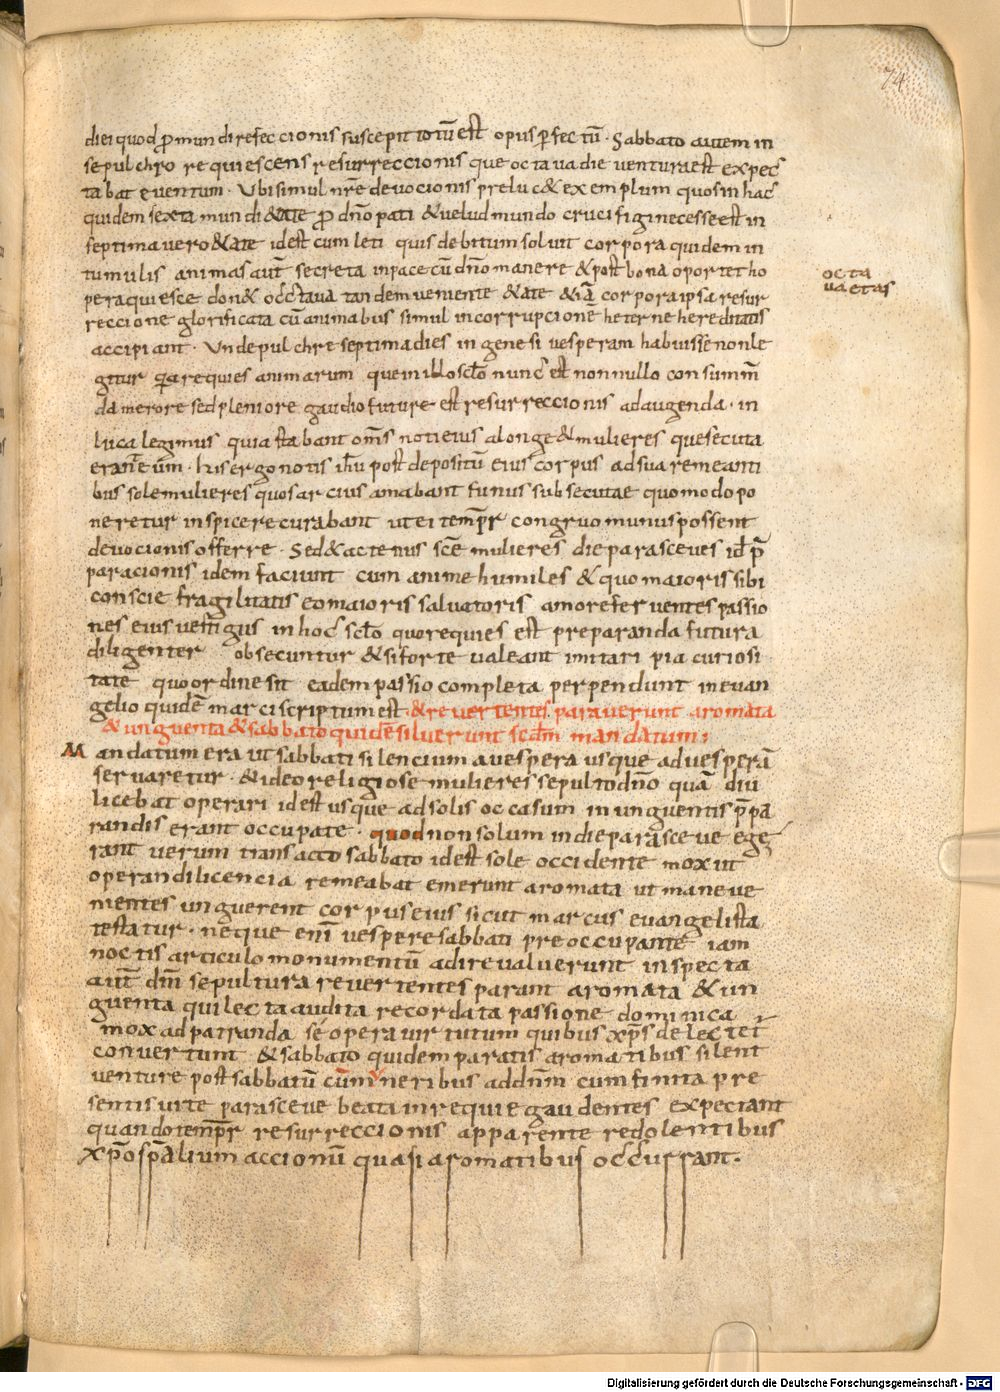 74
diei quod ꝓ mundi refeccionis suscepit totū est opus ꝑfectū · Sabbato autem in
sepulchro requiescens resurreccionis que octaua die uentura est expec
tabat euentum · Ubi simul nr̄e deuocionis preluc& exemplum quos in hac
quidem sexta mundi &ate ꝓ dn̄o pati & uelud mundo crucifigi necesse est in
septima uero &ate id est cum leti quis debitum soluit corpora quidem in
tumulis animas aut̄ secreta in pace cū dn̄o manere & post bona oportet ho
octa
ua etas
pera quiesce don& octaua tandem ueniente &ate &iā corpora ipsa resur
reccione glorificata cū animabus simul incorrupcione heterne hereditatis
accipiant · Unde pulchre septima dies in genesi uesperam habuisse non le
gitur q̄a requies animarum que in illo scl̄o nunc est non nullo consumm̄
da merore sed pleniore gaudio future est resurreccionis adaugenda · in
luca legimus quia stabant om̄s noti eius alonge & mulieres que secuta
erant eum · his ergo notis ih̄u post depositū eius corpus ad sua remeanti
bus sole mulieres quos arcius amabant funus subsecutae quomodo po
neretur inspicere curabant ut ei temp̄r congruo munus possent
deuocionis offerre · Sed & actenus sc̄e mulieres die parasceues id p̄
paracionis idem faciunt cum anime humiles & quo maioris sibi
conscie fragilitatis eo maioris saluatoris amore feruentes passio
nes eius uestigiis in hoc scl̄o quo requies est preparanda futura
diligenter obsecuntur & si forte ualeant imitari pia curiosi
tate quo ordine sit eadem passio completa perpendunt in euan
gelio quidē marci scriptum est · & reuertentes parauerunt aromata
& unguenta & sabbato quidē siluerunt scd̄m mandatum;
Mandatum era ut sabbati silencium a uespera usque ad uesperā
seruaretur · & ideo religiose mulieres sepulto dn̄o quā diu
licebat operari id est usque ad solis occasum in unguentis p̄pa
randis erant occupate · quod non solum in die parasceue ege
rant uerum transacto sabbato id est sole occidente mox ut
operandi licencia remeabat emerunt aromata ut mane ue
nientes unguerent corpus eius sicut marcus euangelista
testatur · neque enī uespere sabbati preoccupante iam
noctis articulo monumentū adire ualuerunt inspecta
aut̄ dn̄i sepultura reuertentes parant aromata & un
guenta qui lecta audita recordata passione dominica
mox ad patranda se opera uirtutum quibus xp̄s delectet̄
conuertunt · & sabbato quidem paratis aromatibus silent
uenture post sabbatū cūm neribus ad dn̄m cum finita pre
sentis uite parasceue beata in requie gaudentes expectant
quando temp̄r resurreccionis apparente redolentibus
xp̄o sp̄alium accionū quasi aromatibus occurrant·
Digitalisierung gefördert durch die Deutsche Forschungsgemeinschaft - DFG